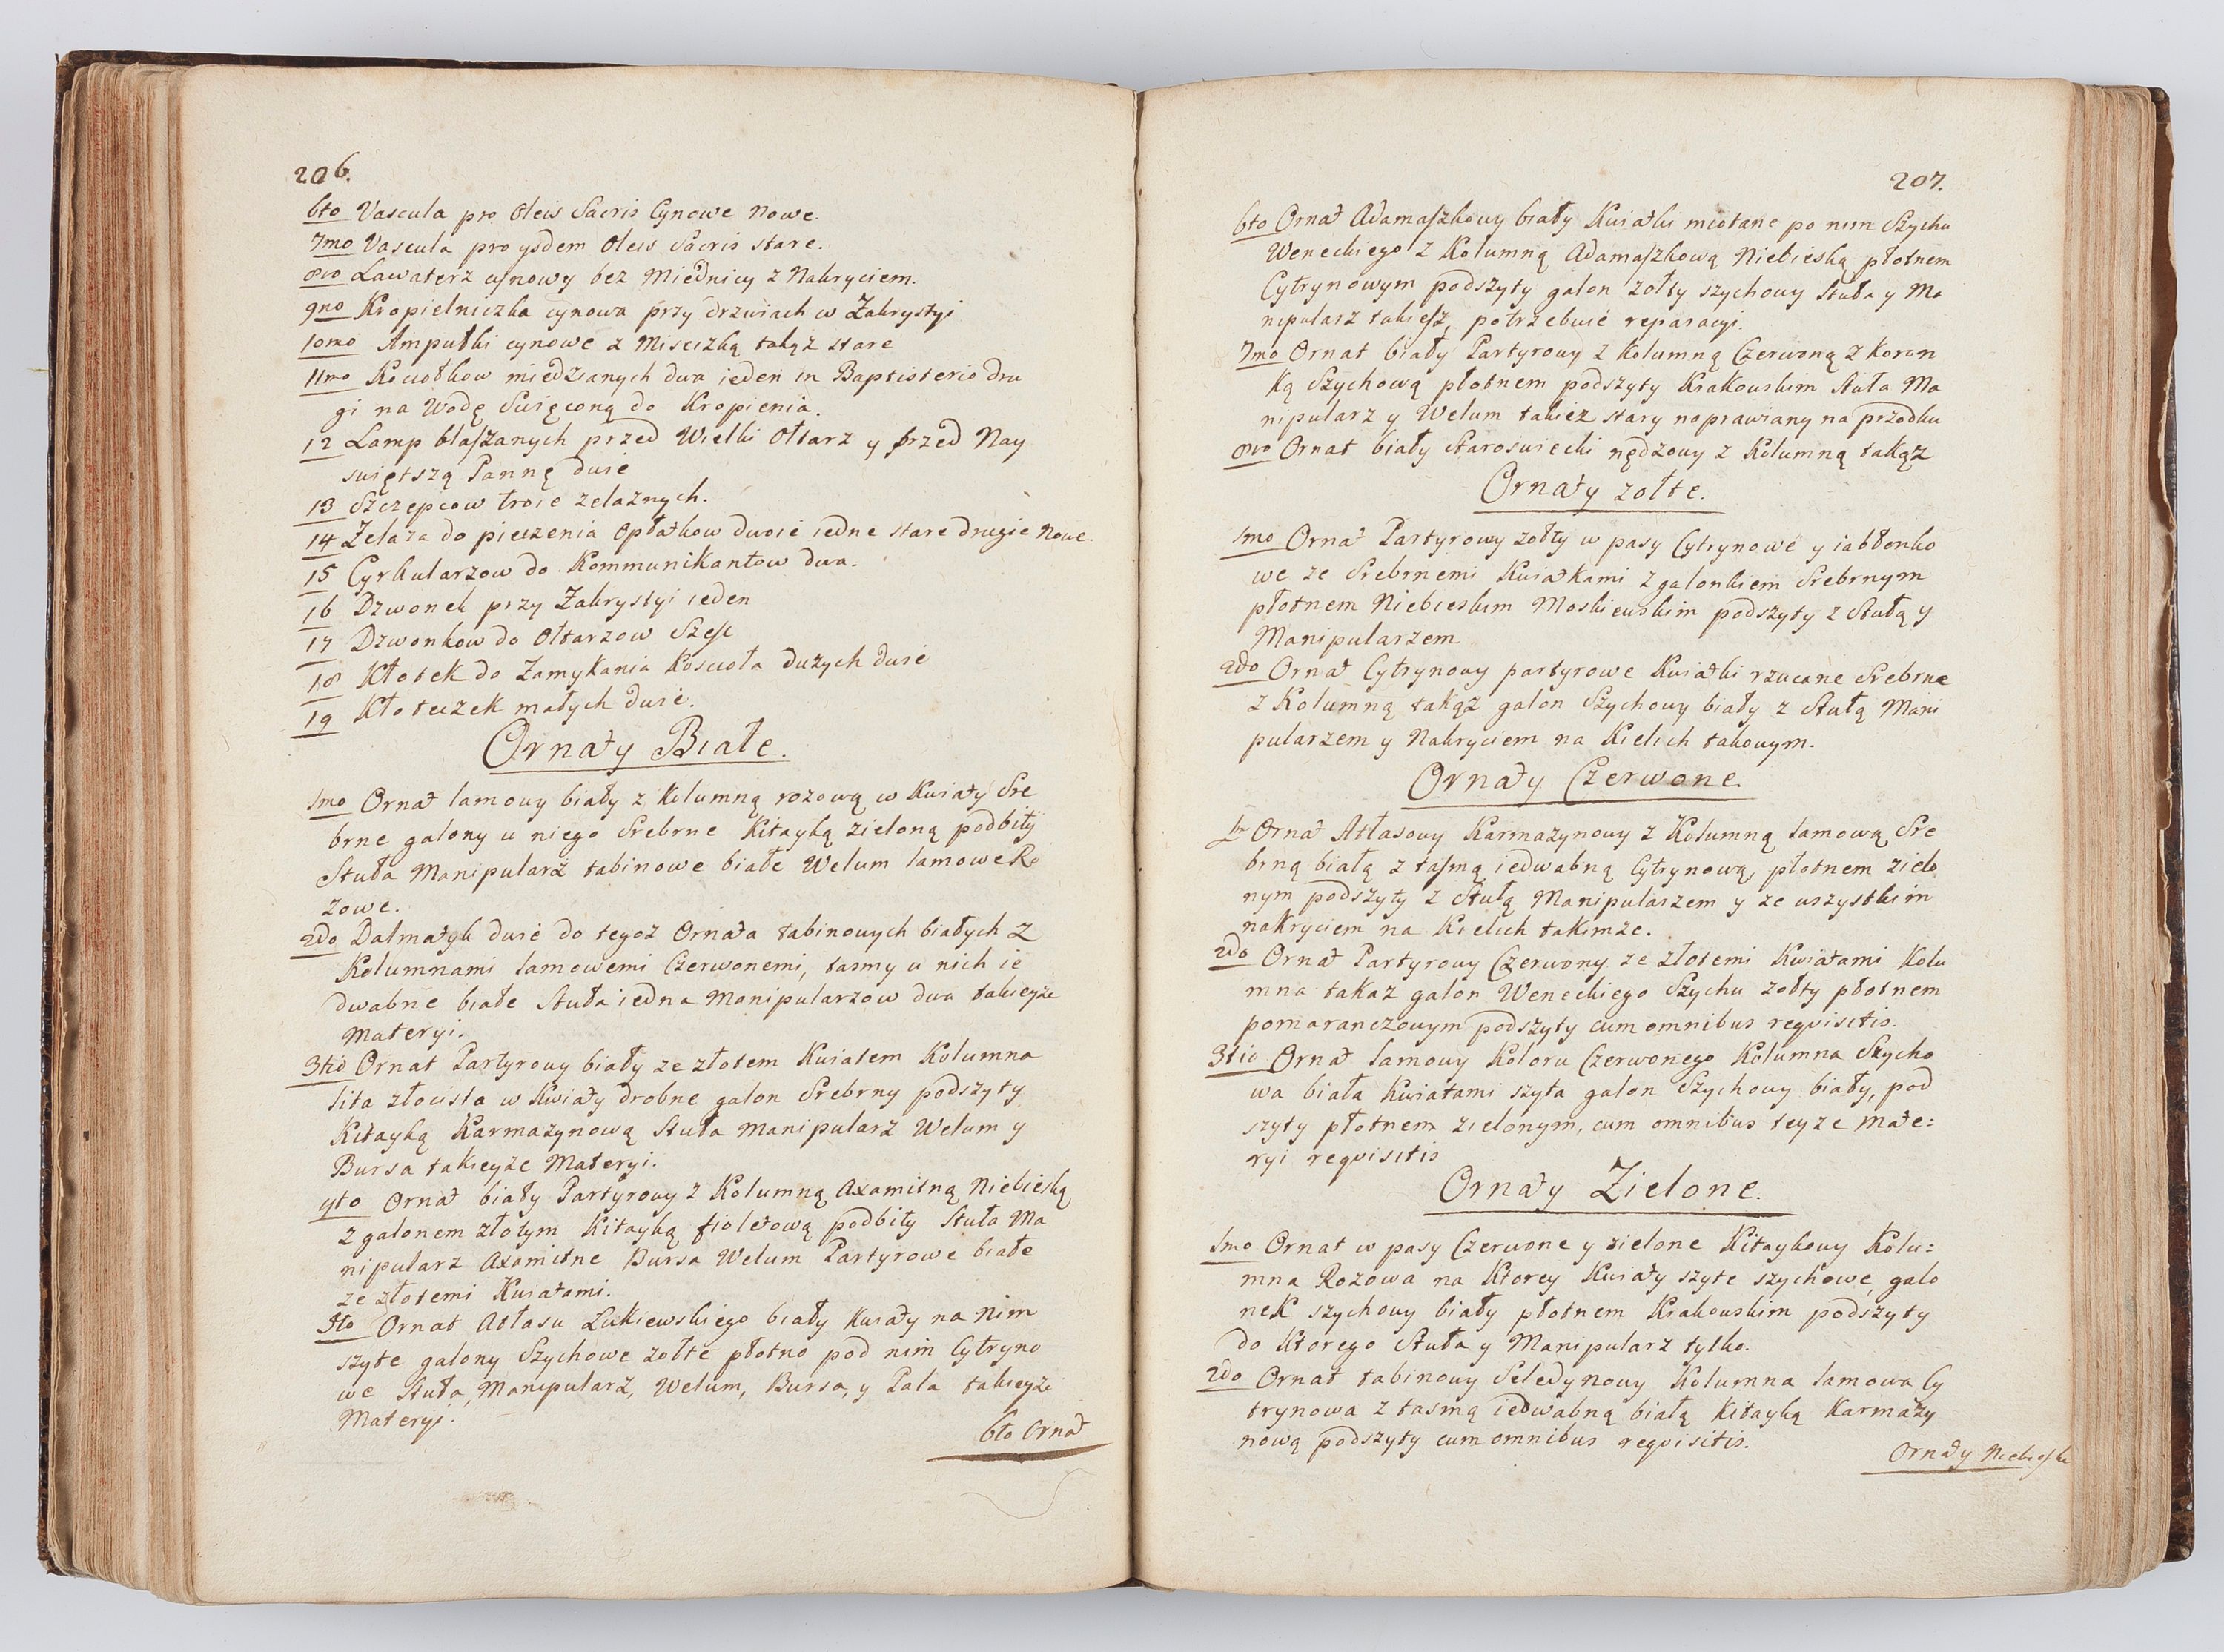 206.
6to Vascula pro Oleis Sacris Cynowe Nowe.
7mo Vascula pro ysdem Oleis Sacris stare.
8vo Lawaterz cynowy bez Miednicy z Nakryciem.
9no Kropielniczka cynowa przy drzwiach w Zakrystyi
10mo Ampułki cynowe z Miseczką takąż stare
11mo Kociołkow miedzianych dwa ieden in Baptisterio dru
gi na Wodę Swięconą do Kropienia.
12 Lamp blaszanych przed Wielki Ołtarz y przed Nay
swiętszą Panną dwie
13 Szczepcow troie zelaznych.
14 Zelaza do pieczenia Opłatkow dwoie iedne stare drugie Nowe.
15 Cyrkularzow do Kommunikantow dwa.
16 Dzwonek przy Zakrystyi ieden
17 Dzwonkow do Ołtarzow Szesc
18 Kłotek do Zamykania Koscioła duzych dwie
19 Kłoteczek małych dwie.
Ornaty Białe.
1mo Ornat lamowy biały z Kolumną rozową w Kwiaty Sre
brne galony u niego Srebrne Kitayką zieloną podbity
Stuła Manipularz tabinowe białe Welum lamowe Ro
zowe.
2do Dalmatyk dwie do tegoz Ornata tabinowych białych z
Kolumnami lamowemi Czerwonemi, tasmy u nich ie
dwabne białe Stuła iedna Manipularzow dwa takieyże
Materyi.
3tio Ornat Partyrowy biały ze złotem Kwiatem Kolumna
lita złocista w Kwiaty drobne galon Srebrny podszyty
Kitayką Karmazynową Stuła Manipularz Welum y
Bursa takieyże Materyi.
4to Ornat biały Partyrowy z Kolumną Axamitną Niebieską
z galonem złotym Kitayką fioletową podbity Stuła Ma
nipularz Axamitne Bursa Welum Partyrowe białe
ze złotemi Kwiatami.
5to Ornat Atłasu Łukiewskiego biały kwiaty na Nim
szyte galony Szychowe zołte płotno pod nim Cytryno
we Stuła, Manipularz, Welum, Bursa, y Pala takieyże
Materyi.
6to Ornat
207.
6to Ornat Adamaszkowy biały Kwiatki miotane po nim Szychu
Weneckiego z Kolumną Adamaszkową Niebieską płotnem
Cytrynowym podszyty galon zołty szychowy Stuła y Ma
nipularz takiesz, potrzebuie reparacyi.
7mo Ornat biały Partyrowy z Kolumną Czerwoną z Koron
ką Szychową płotnem podszyty Krakowskim Stuła Ma
nipularz y Welum takiez stary naprawiany na przodku
8vo Ornat biały Staroswiecki nędzowy z Kolumną takąż
Ornaty zołte.
1mo Ornat Partyrowy zołty w pasy Cytrynowe y iabłonko
we ze Srebrnemi Kwiatkami z galonkiem Srebrnym
płotnem Niebieskim Moskiewskim podszyty z Stułą y
Manipularzem
2do Ornat Cytrynowy partyrowe Kwiatki rzucane Srebrne
z Kolumną takąż galon Szychowy biały z Stułą Mani
pularzem y Nakryciem na Kielich takowym.
Ornaty Czerwone.
Ornat Atłasowy Karmazynowy z Kolumną lamową Sre
brną białą z tasmą iedwabną Cytrynową, płotnem zielo
nym podszyty z Stułą Manipularzem y ze wszystkim
nakryciem na Kielich takimże.
2do Ornat Partyrowy Czerwony ze złotemi Kwiatami Kolu
mna takaz galon Weneckiego Szychu zołty płotnem
pomaranczowym podszyty cum omnibus reqvisitis.
3tio Ornat lamowy Koloru Czerwonego Kolumna Szycho
wa biała Kwiatami szyta galon Szychowy biały, pod
szyty płotnem zielonym, cum omnibus teyze Mate:
ryi reqvisitis
Ornaty Zielone.
1mo Ornat w pasy Czerwone y zielone Kitaykowy Kolu:
mna Rozowa na Ktorey Kwiaty szyte szychowe, galo
nek szychowy biały płotnem Krakowskim podszyty
do Ktorego Stuła y Manipularz tylko.
2do Ornat tabinowy Seledynowy Kolumna lamowa Cy
trynowa z tasmą iedwabną białą Kitayką Karmazy
nową podszyty cum omnibus reqvisitis.
Ornaty Niebieskie